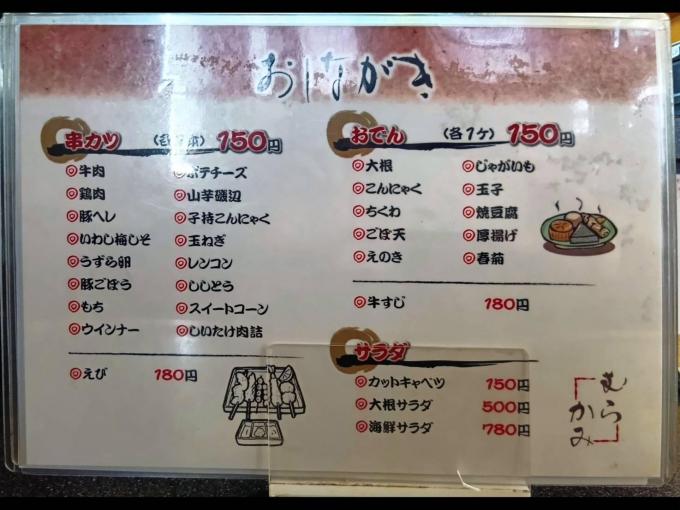 おしながき
串カツ (各1本) 150円
牛肉
鶏肉
豚ヘレ
いわし梅しそ
うずら卵
豚ごぼう
もち
ウインナー
ポテチーズ
山芋磯辺
子持こんにゃく
玉ねぎ
レンコン
ししとう
スイートコーン
しいたけ肉詰
えび 180円
おでん (各1ケ) 150円
大根
こんにゃく
ちくわ
ごぼ天
えのき
じゃがいも
玉子
焼豆腐
厚揚げ
春菊
牛すじ 180円
サラダ
カットキャベツ 150円
大根サラダ 500円
海鮮サラダ 780円
むらかみ